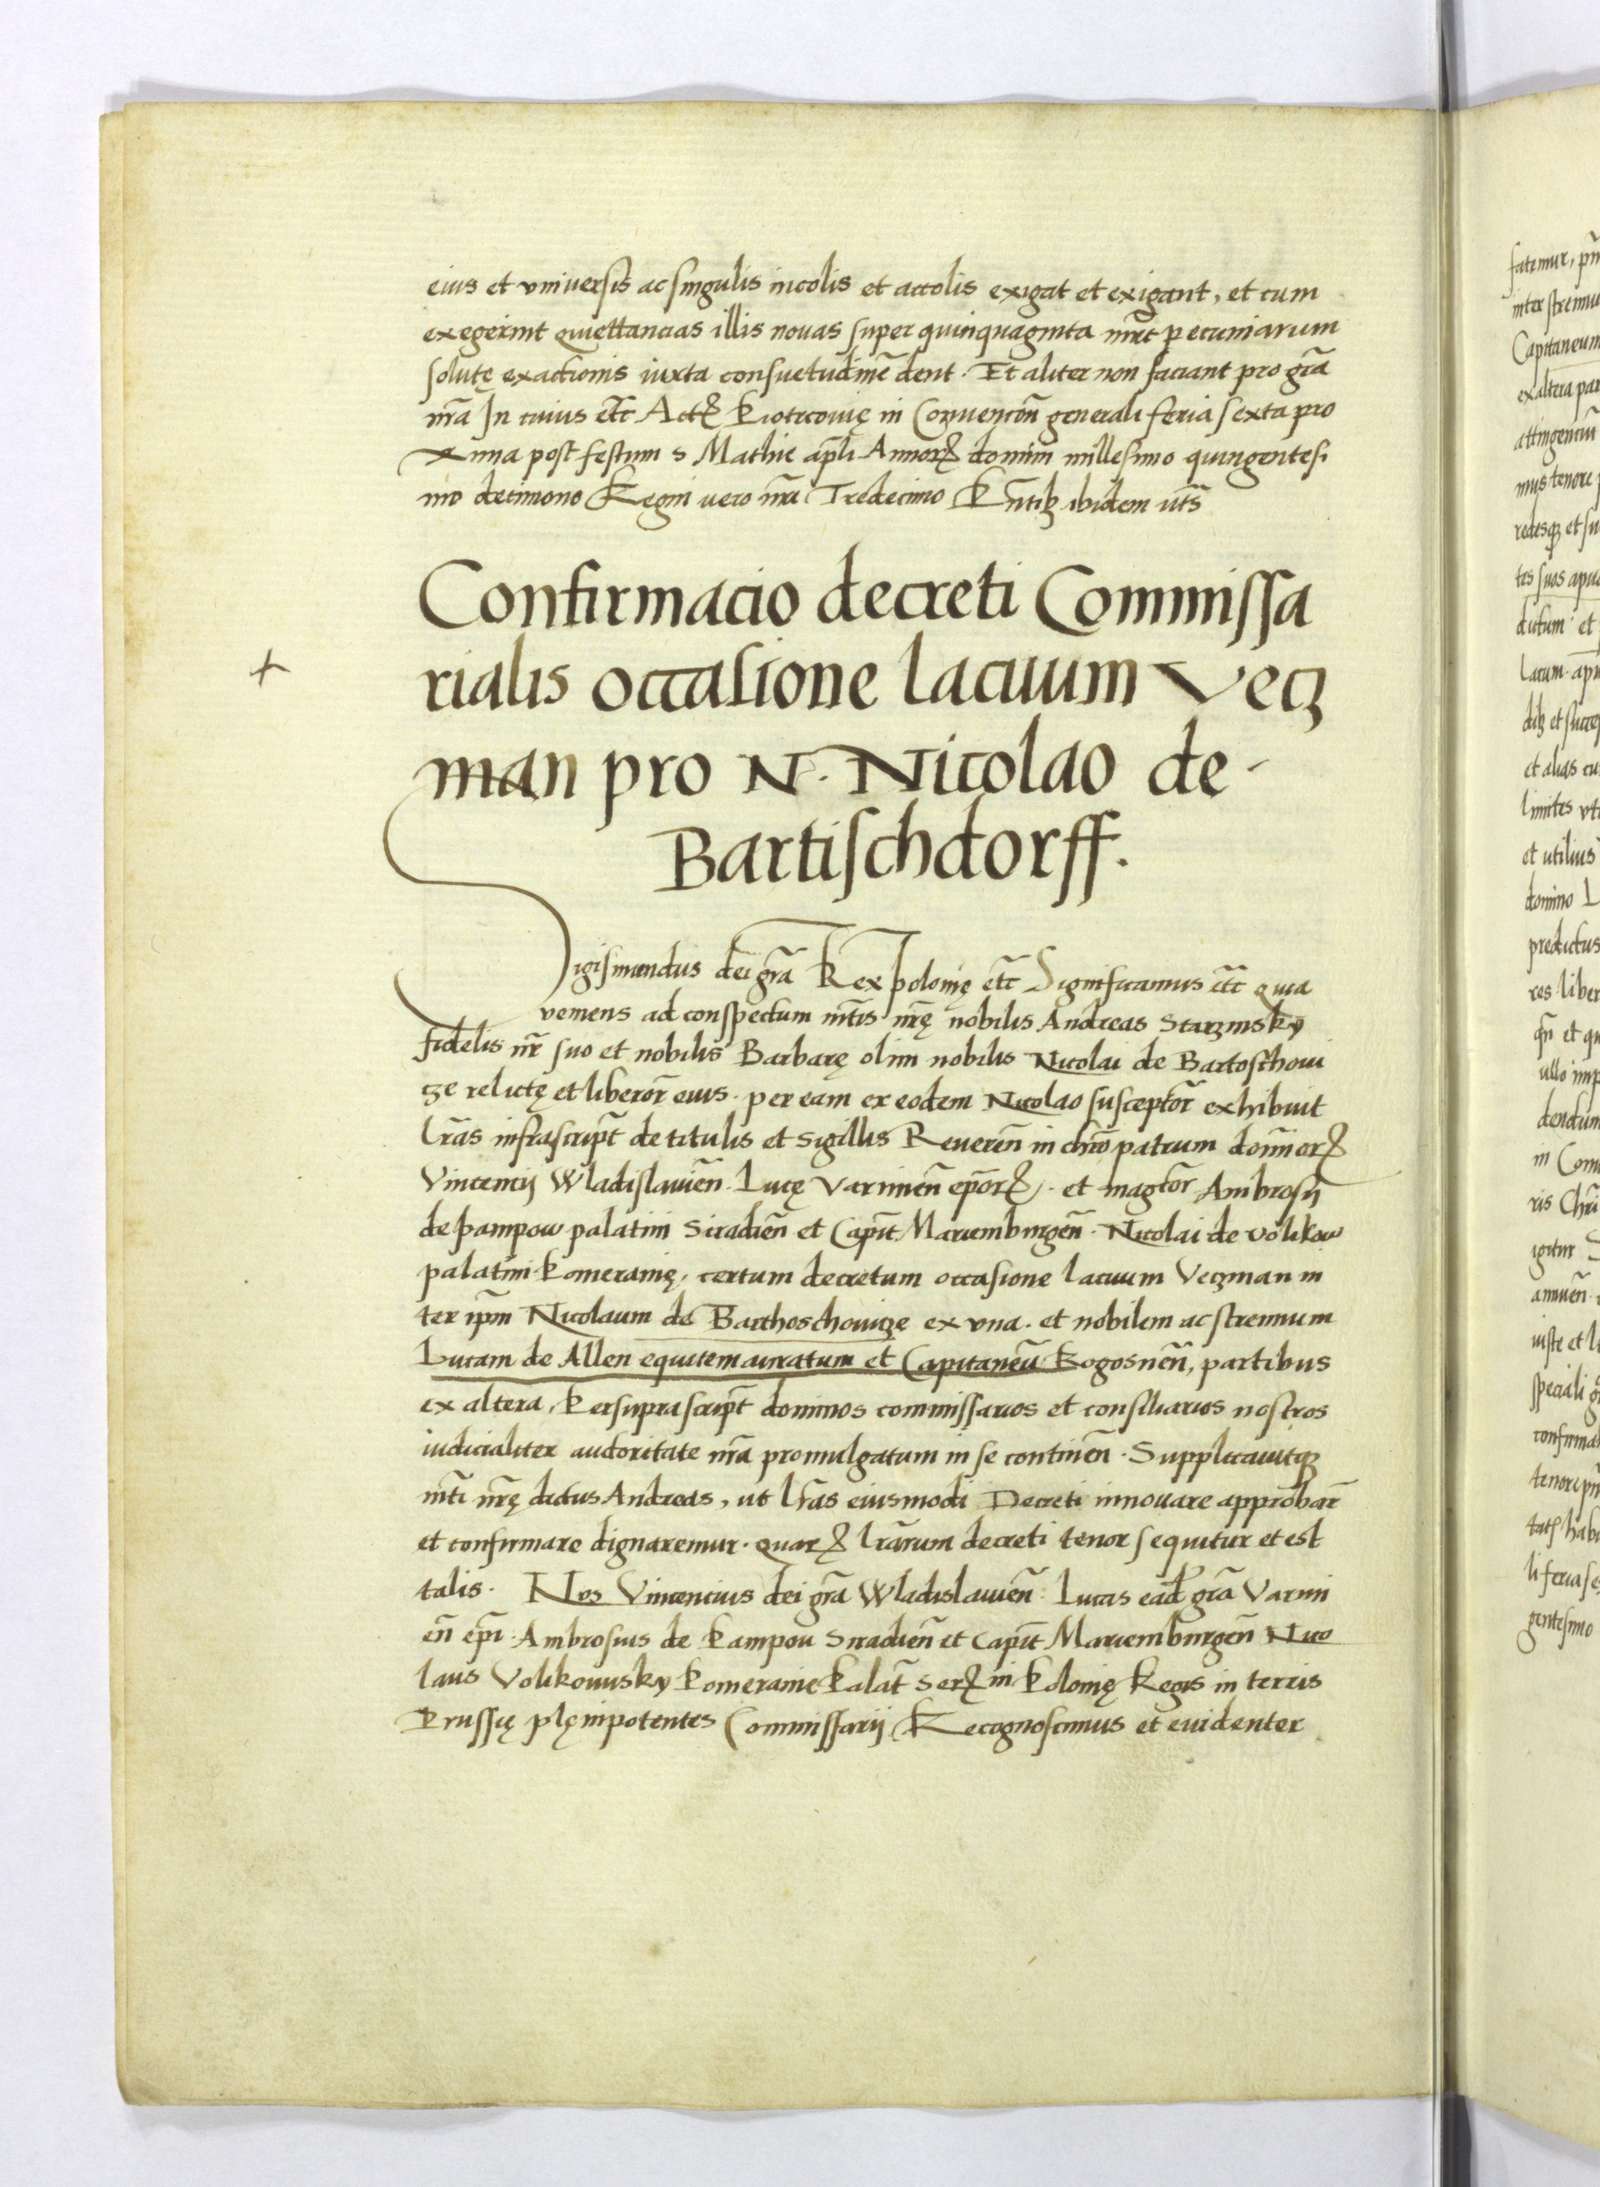 eius et vniuersis ac singulis incolis et accolis exigat et exigant, et cum
exegerint quiettancias illis nouas super quinquaginta mrc̃ pecuniarum
solutę exactionis iuxta consuetudinẽ dent. Et aliter non faciant pro grã
nr̃a In cuius etc̃ Actꝝ Piotrcouię in Conuencõn generali feria sexta pro
xima post festum s Mathie apl̃i Annorꝝ domini millesimo quingentesi
mo decimono Regni vero nr̃i Tredecimo Pñtibꝫ ibidem ut s̃
Confirmacio decreti Commissa
rialis occasione lacuum Vecz
man pro N. Nicolao de
Bartischdorff.
Sigismundus dei grã Rex Polonię etc̃ Significamus etc̃ quia
veniens ad conspectum mt̃is nr̃ę nobilis Andreas Starzinsky
fidelis nr̃ suo et nobilis Barbarę olim nobilis Nicolai de Bartoschoui
cze relictę et liberor̃ eius. per eam ex eodem Nicolao susceptor̃ exhibuit
lr̃as infrascript̃ de titulis et sigillis Reueren̄ in chr̃o patrum dominorꝝ
Vincencij Wladislauien̄. Lucę Varmien̄ ep̃orꝝ. et magcor̃ Ambrosij
de Pampow palatini Siradien̄ et Capit̃ Mariemburgen̄. Nicolai de Volikow
palatini Pomeranię, certum decretum occasione lacuum Veczman in
ter ip̃m Nicolaum de Barthoschouicze ex vna. et nobilem ac strennuum
Lucam de Allen equitem auratum et Capitaneũ Rogosnen̄, partibus
ex altera, Per suprascript̃ dominos commissarios et consiliarios nostros
iudicialiter auctoritate nr̃a promulgatum in se continen̄. Supplicauitqꝫ
mt̃i nr̃ę dictus Andreas, ut lr̃as eiusmodi Decreti innouare approbar̃
et confirmare dignaremur. quarꝝ lr̃arum decreti tenor sequitur et est
talis. Nos Vincencius dei grã Wladislauien̄. Lucas ead̃ grã Varmi
en̄ ep̃i. Ambrosius de Pampou Siradien̄ et Capit̃ Mariemburgen̄ Nico
laus Volikouusky Pomeranie Palat̃ Serꝝ in Polonię Regis in terris
Prussię plęnipotentes Commissarij Recognoscimus et euidenter